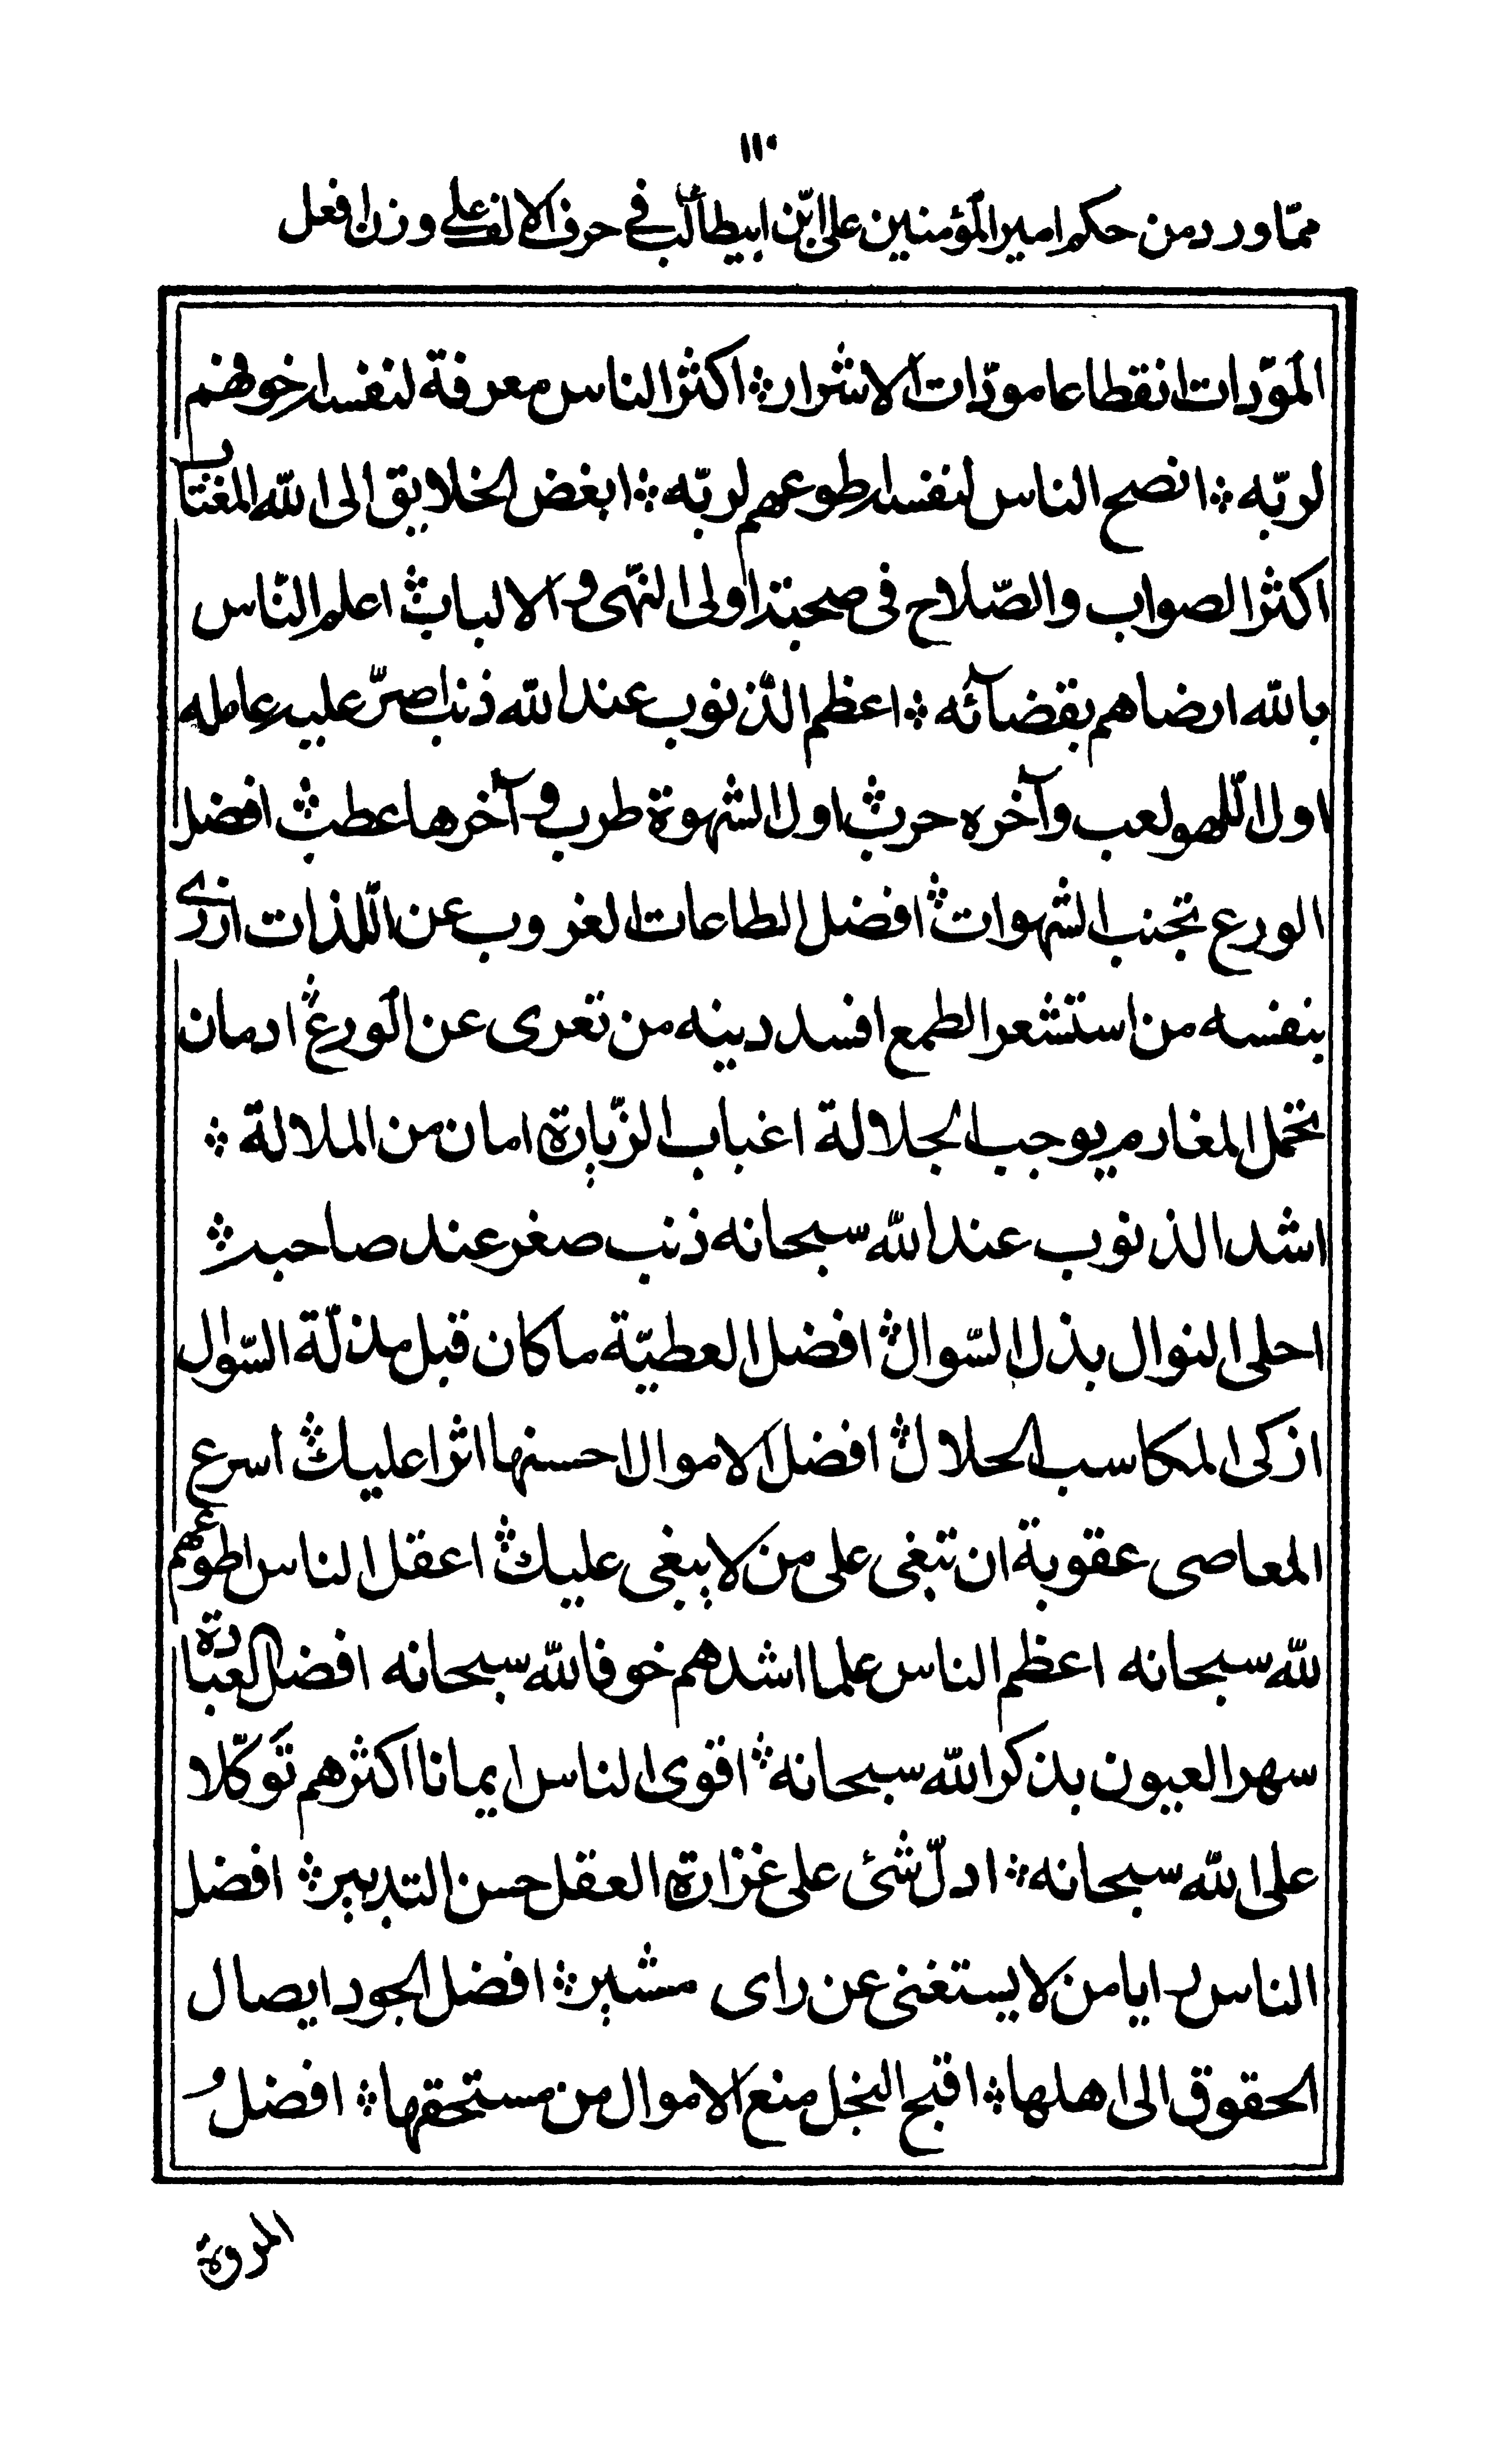 ١١٠
ممّا ورد من حكم امير المؤمنين علی ابن ابيطالب في حرف الالف علے وزن افعل
المودّات انقطاعا مودّات الاشرار ؞ اكثر الناس معرفة لنفسه اخوفهم
لربّه ؞ انصح الناس لنفسه اطوعهم لربّه ؞ ابغض الخلايق الى الله المغتاب
اكثر الصواب والصّلاح فى صحبة اولى النهى و الالباب ؞ اعلم النّاس
بالله ارضاهم بقضائه ؞ اعظم الذّنوب عند الله ذنب اصرّ عليه عامله
اول اللّهو لعب وآخره حرب ؞ اول الشهوة طرب و آخرها عطب ؞ افضل
الورع تجنب الشهوات ؞ افضل الطاعات العزوب عن اللّذات ازرى
بنفسه من استشعر الطمع افسد دينه من تعرى عن الورع ؞ ادمان
تحمل المغارم يوجب الجلالة اغباب الزّيارة امان من الملالة ؞
اشد الذنوب عند الله سبحانه ذنب صغر عند صاحبه ؞
احلى النوال بذل السّوال ؞ افضل العطيّة ما كان قبل مذلّة السّوال
ازكى المكاسب الحلال ؞ افضل الاموال احسنها اثرا عليك ؞ اسرع
المعاصى عقوبة ان تبغى على من لا يبغى عليك ؞ اعقل الناس اطوعهم
لله سبحانه اعظم الناس علما اشدهم خوفا لله سبحانه افضل العبادة
سهر العيون بذكر الله سبحانه ؞ اقوى الناس ايمانا اكثرهم توكّلا
على الله سبحانه ؞ ادلّ شئ على غزارة العقل حسن التدبير ؞ افضل
الناس رايا من لا يستغنى عن راى مشير ؞ افضل الجود ايصال
الحقوق الى اهلها ؞ اقبح البخل منع الاموال من مستحقها ؞ افضلُ
المروة